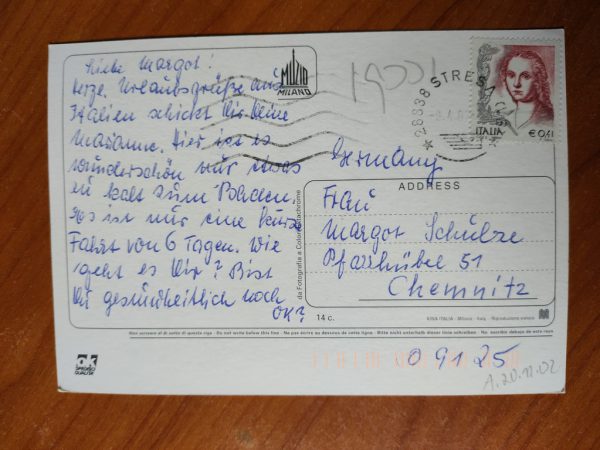 Liebe Margot!
herzl. Urlaubsgrüße aus
Italien schickt Dir Deine
Marianne. Hier ist es
wunderschön nur etwas
zu kalt zum Baden.
Es ist nur eine kurze
Fahrt von 6 Tagen. Wie
geht es Dir? Bist
Du gesundheitlich noch
OK?
MUZIO
MILANO
28838 STRESA
ITALIA
€ 0,41
Germany
ADDRESS
Frau
Margot Schulze
Pfarrhübel 51
Chemnitz
da Fotografia a Colori
14 c.
KINA ITALIA - Milano - Italy - Riproduzione vietata
Non scrivere al di sotto di questa riga - Do not write below this line - Ne pas écrire au dessous de cette ligne - Bitte nicht unterhalb dieser linie schreiben - No escribir debajo de esta raya
09125
A. 20.11.02